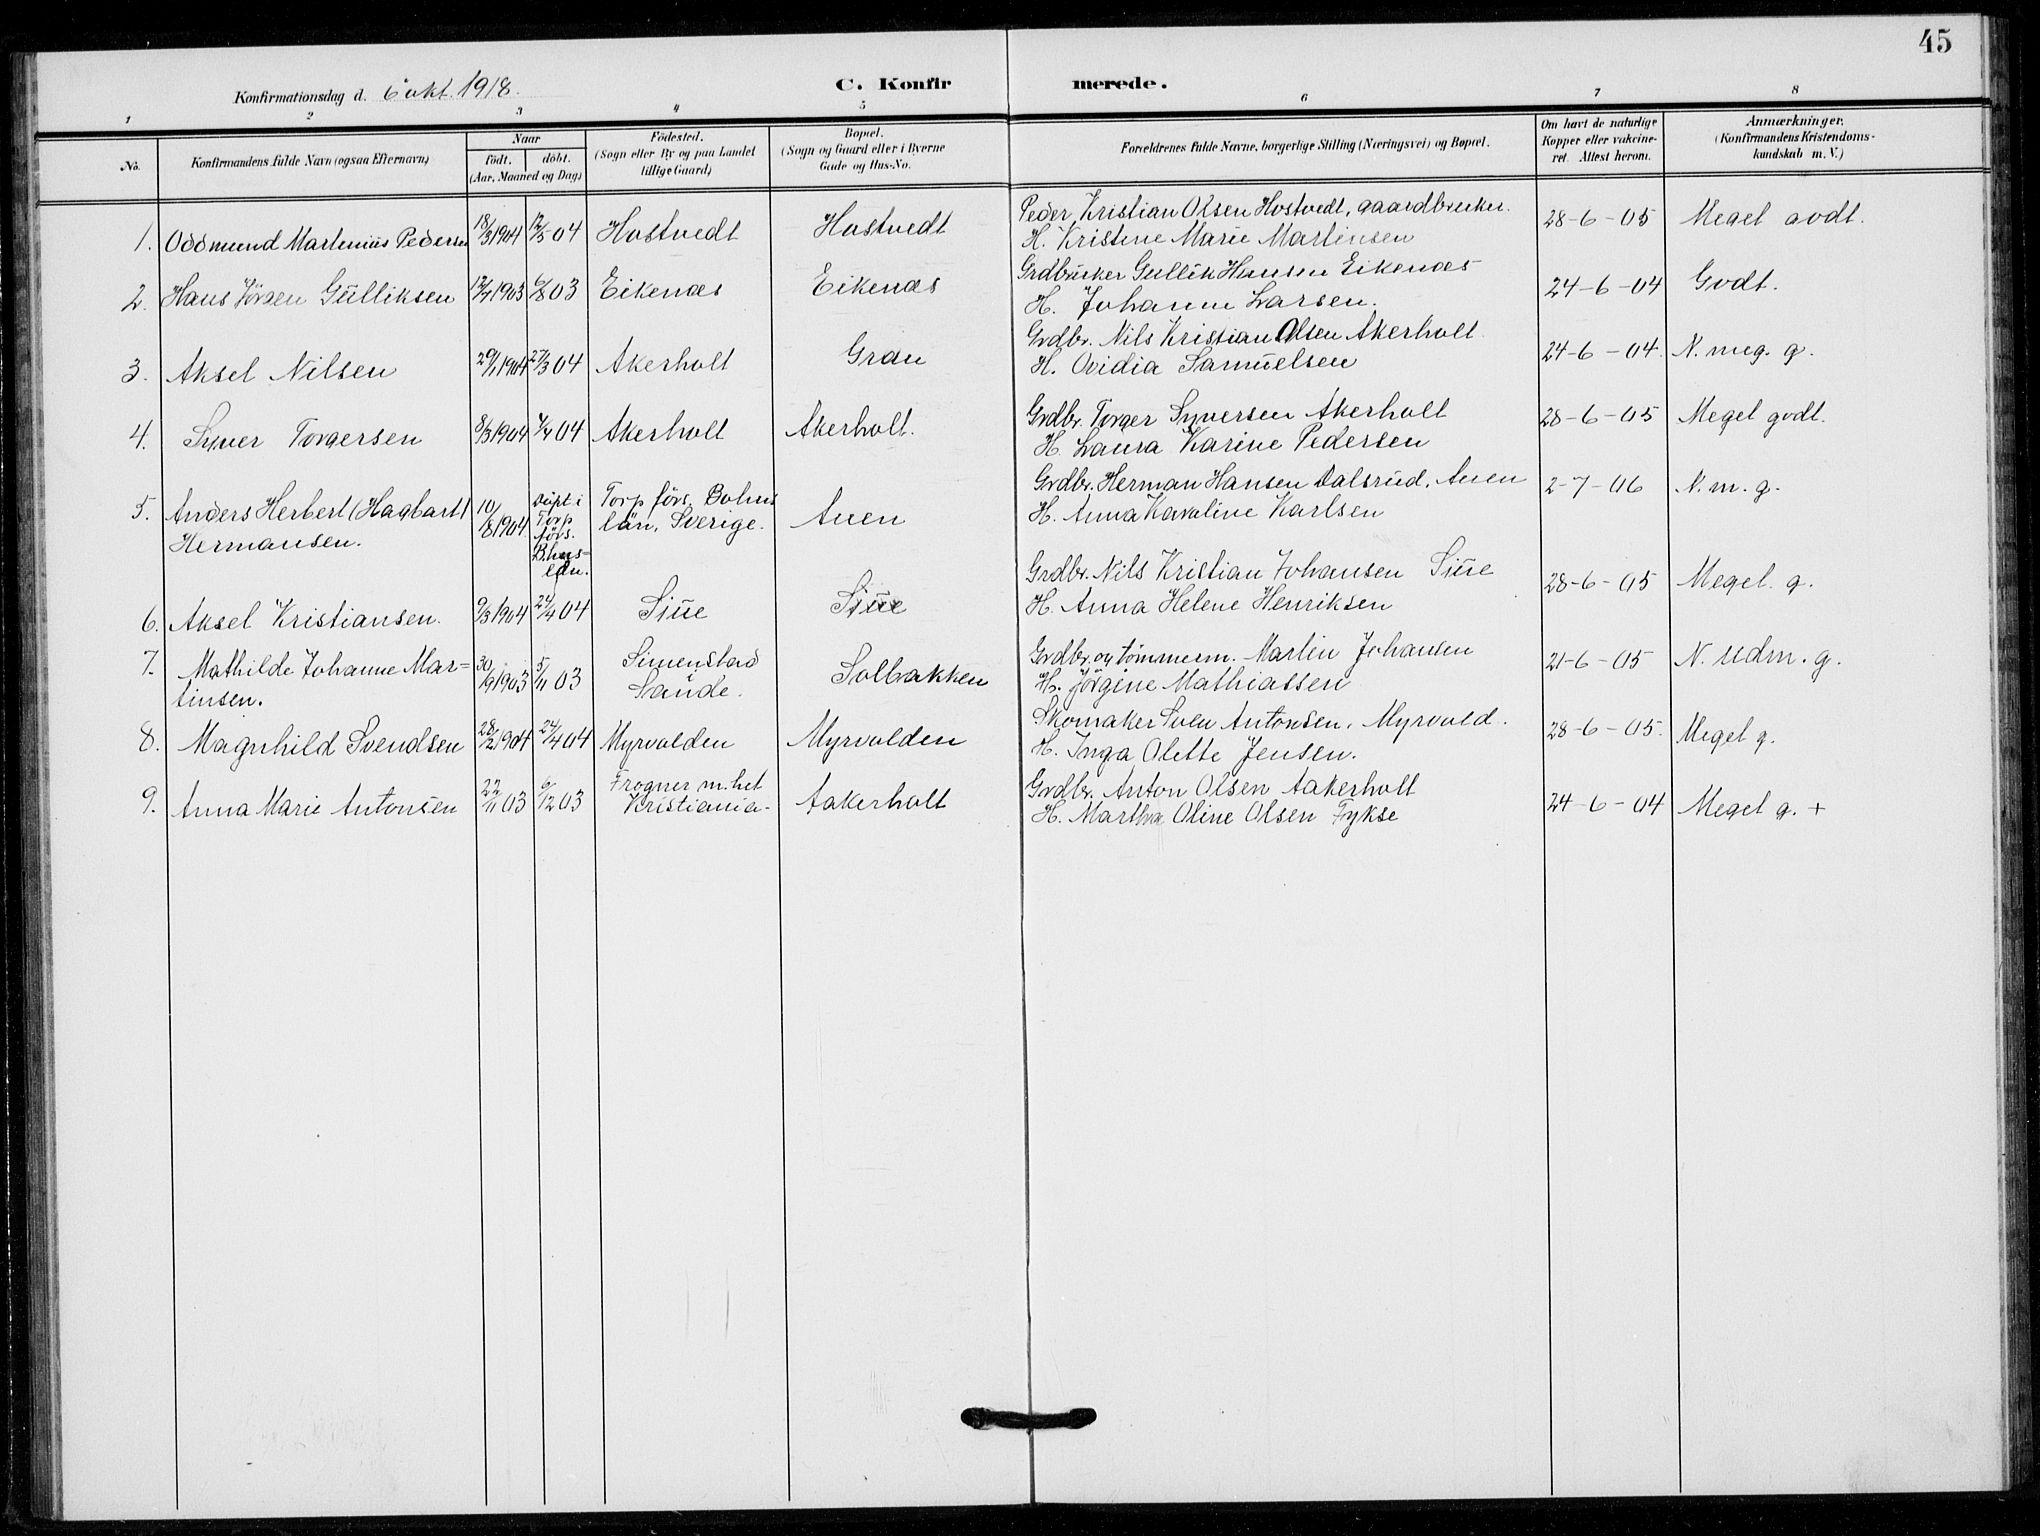 45
Konfirmationsdag d. 6 okt. 1918.
C. Konfirmerede.
1 2 3 4 5 6 7 8
No.
Konfirmandens fulde Navn (ogsaa Efternavn)
Naar
födt. döbt.
(Aar, Maaned og Dag)
Födested.
(Sogn eller By og paa Landet
tillige Gaard)
Bopæl.
(Sogn og Gaard eller i Byerne
Gade og Hus-No.
Forældrenes fulde Navne, borgerlige Stilling (Næringsvei) og Bopæl.
Om havt de naturlige
Kopper eller vakcine-
ret. Attest herom.
Anmærkninger.
(Konfirmandens Kristendoms-
kundskab m. V.)
1. Oddmund Martenius Pedersen 18/3 1904 12/5 04 Hostvedt Hostvedt Peder Kristian Olsen Hostvedt, gaardbruker. 28-6-05 Meget godt.
H. Kristine Marie Martinsen
2. Hans Jörgen Gulliksen 1903 6/8 03 Eikenæs Eikenæs Grdbruker Gullik Hansen Eikenæs 24-6-04 Godt.
H. Johanne Larsen.
3. Aksel Nilsen 29/1 1904 27/3 04 Akerholt Gran Grdbr. Nils Kristian Olsen Akerholt 24-6-04. N. meg. g.
H. Ovidia Samuelsen
4. Syver Torgersen 8/3 1904 4/4 04 Akerholt Akerholt. Grdbr. Torger Syversen Akerholt 28-6-05 Meget godt.
H. Laura Karine Pedersen
5. Anders Herbert (Hagbart) 10/8 1904 Döpt i Torp förs. Bohus Auen Grdbr. Herman Hansen Dalsrud, Auen 2-7-06 N. m. g.
Hermansen. Torp förs. B.hus-län. län, Sverige. H. Anna Karoline Karlsen
6. Aksel Kristiansen. 9/3 1904 24/4 04 Siue Siue Grdbr. Nils Kristian Johansen Siue 28-6-05 Meget g.
H. Anna Helene Henriksen
7. Mathilde Johanne Mar= 30/9 1903 5/11 03 Simenstad Solbakken Grdbr. og tömmerm. Martin Johansen 21-6-05 N. udm. g.
tinsen. Sande. H. Jörgine Mathiassen
8. Magnhild Svendsen 28/2 1904 24/4 04 Myrvolden Myrvolden Skomaker Sven Antonsen, Myrvold. 28-6-05. Meget g.
H. Inga Olette Jensen.
9. Anna Marie Antonsen 22/11 03 6/12 03 Frogner m.het Aakerholt Grdbr. Anton Olsen Aakerholt 24-6-04 Meget g. +
Kristiania. H. Martha Oline Olsen Fykse